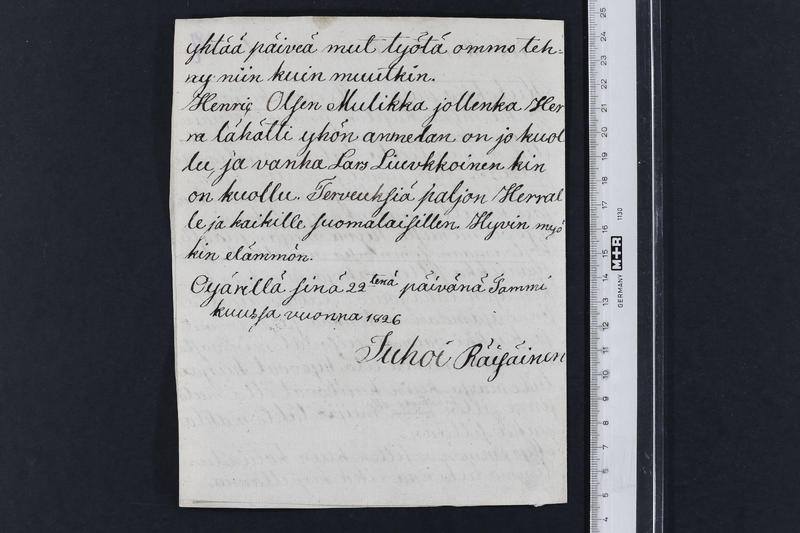 yhtää päiveä mut työtä ommo teh-
ny niin kuin muutkin.
Henriç Olsen Mulikka jollenka Her
ra lähätti yhön anmedan on jo kuol
lu, ja vanha Lars Liuvkkoinen kin
on kuollu. Terveuksiä paljon Herral
le ja kaikille suomalaisillen. Hyvin myö
kin elämmön.
Oyärillä sinä 22 tenä päivänä Tammi
kuussa vuonna 1826
Juhoi Räisäinen
25
24
23
22
21
20
19
18
17
16
15
14
13
12
11
10
9
8
7
6
5
4
GERMANY M+R 1130